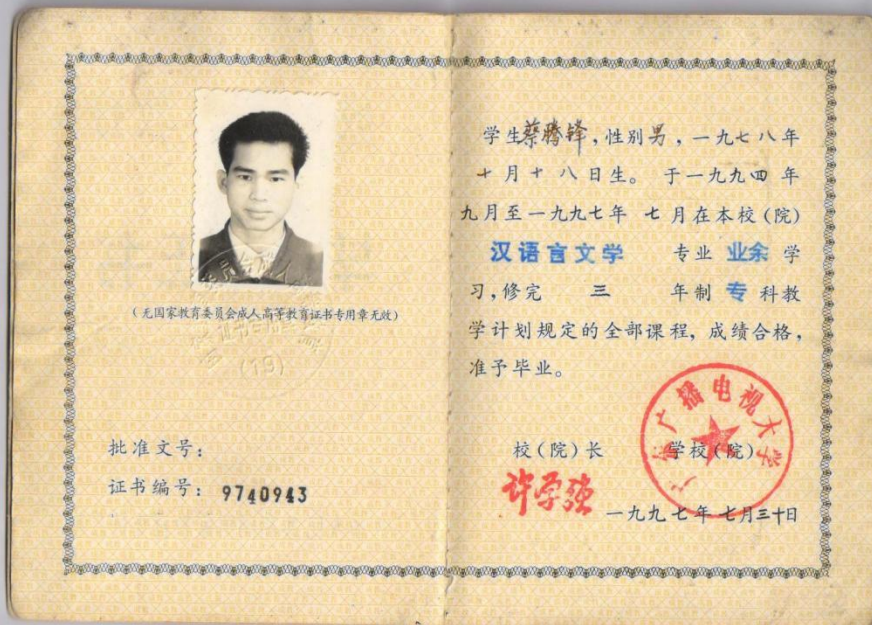 (无国家教育委员会成人高等教育证书专用章无效)
(19)
批准文号:
证书编号: 9740943
学生蔡腾锋,性别男,一九七八年
十月十八日生。 于一九九四 年
九月至一九九七年 七月在本校(院)
汉语言文学 专业 业余 学
习,修完 三 年制 专 科教
学计划规定的全部课程,成绩合格,
准予毕业。
校(院)长 学校(院)
许学强
广播电视大学
一九九七年七月三十日